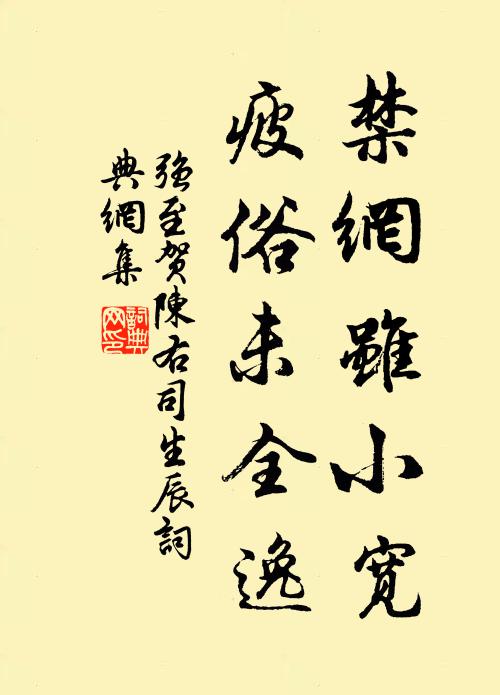 禁網雖小寬
疲俗未全逸
強至賀陳右司生辰詞
典網集
詞典網印